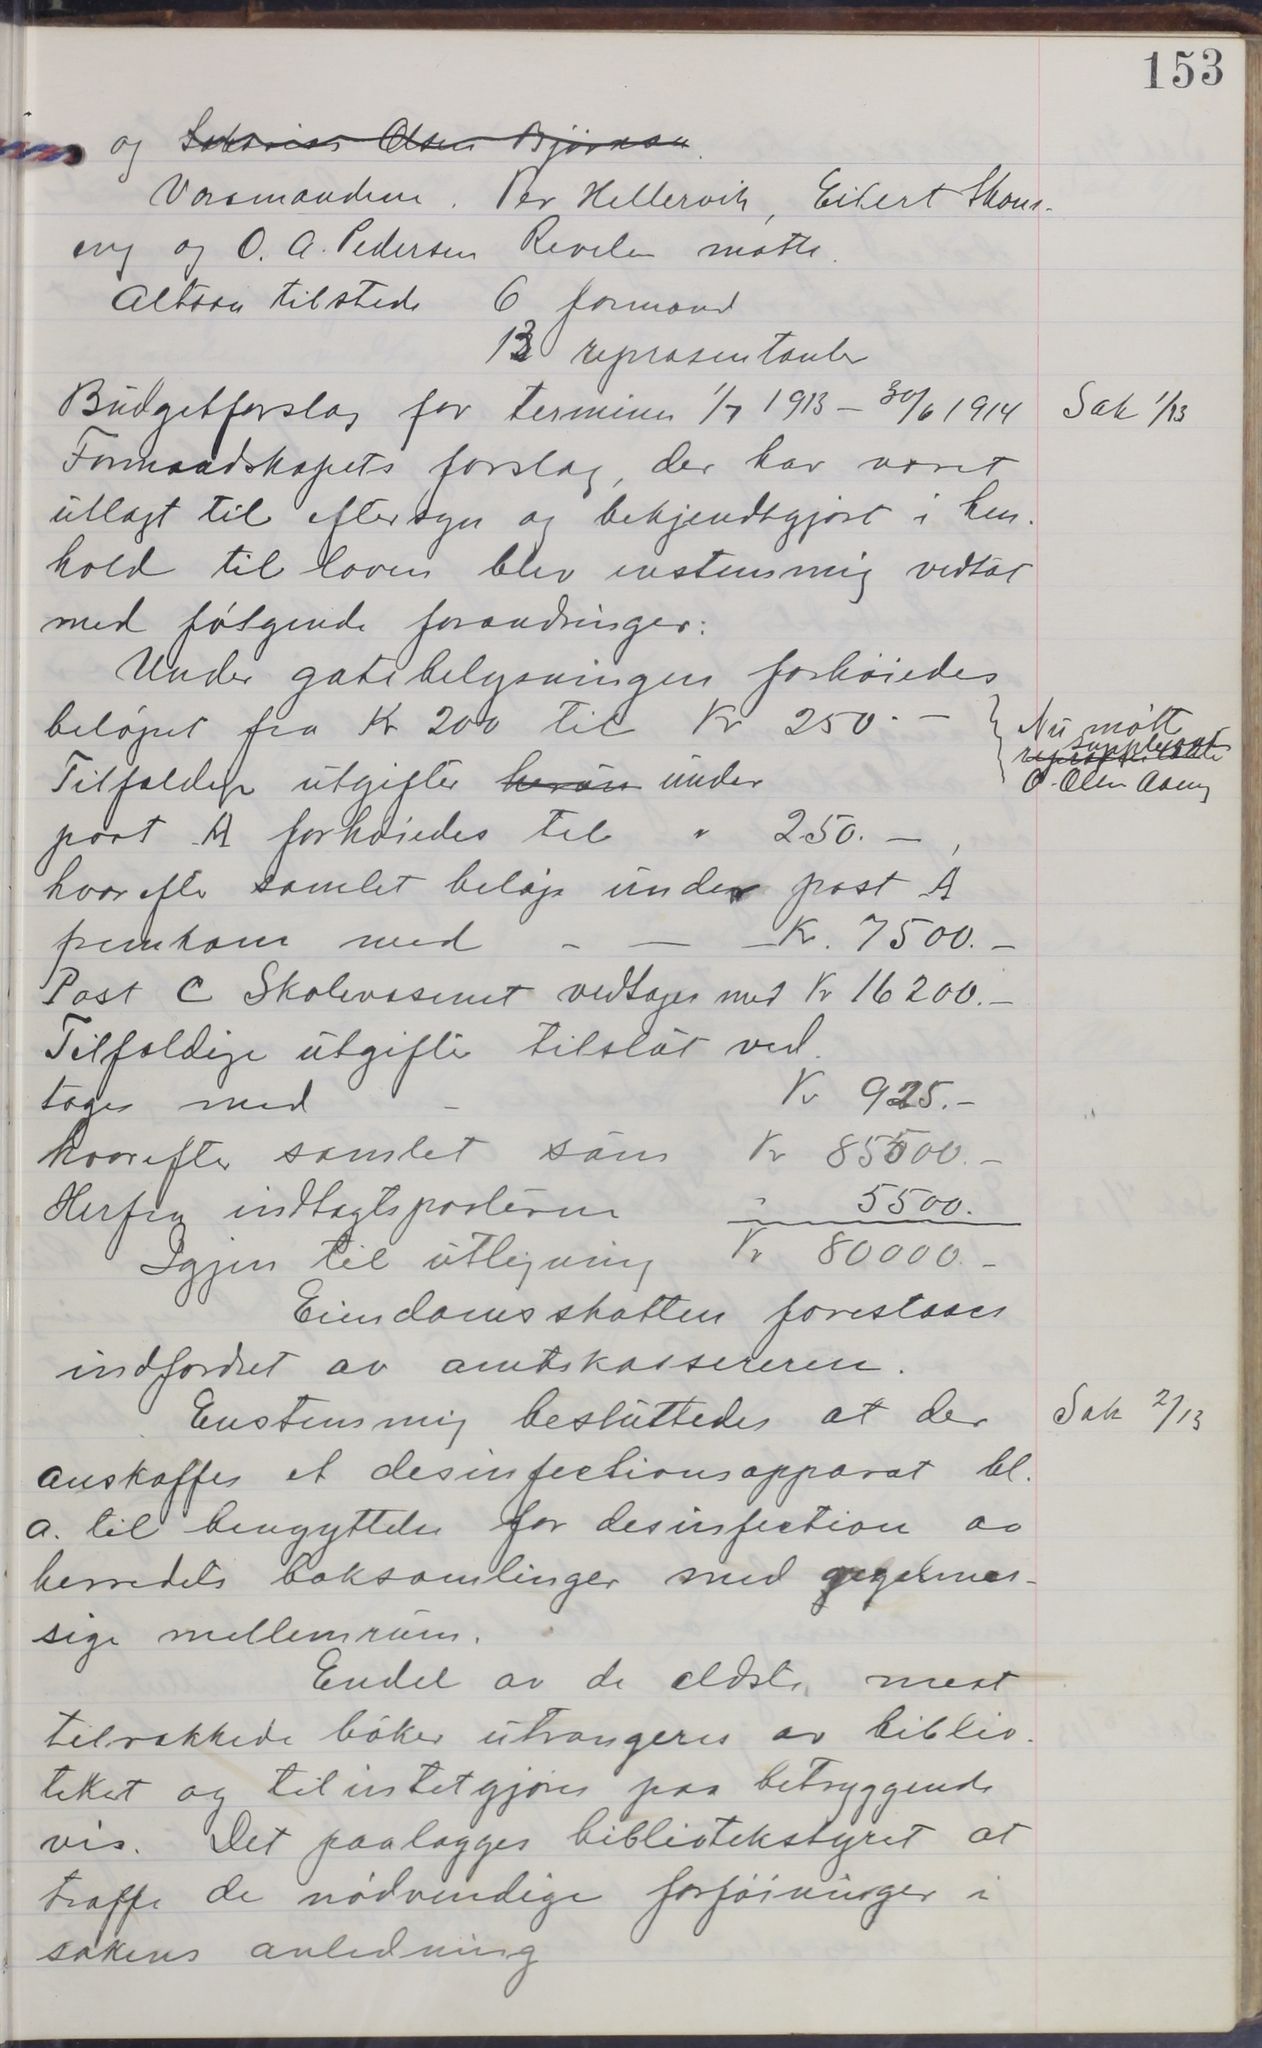 153
og Sakarias Olsen Bjørnsen
Varamændene. Per Hellervik, Eilert Skons-
eng og O. A. Pedersen Revelen møtte.
Altsaa tilstede 6 formænd
13 repræsentanter
Budgetforslag for terminen 1/7 1913 – 30/6 1914
Sak 1/13
Formandskapets forslag, der har været
utlagt til eftersyn og bekjendtgjort i hen-
hold til loven blev enstemmig vedtat
med følgende forandringer:
Under gatebelysningen forhøiedes
beløpet fra Kr 200 til Kr 250.–
Nu møtt
repræsentante
supplerant
O. Olsen Aaeng
Tilfældige utgifter under
post A forhøiedes til " 250.–,
hvorefter samlet beløp under post A
fremkom med – – – Kr. 7500.–
Post C Skolevæsenet vedtages med Kr 16200.–
Tilfældige utgifter tilslut ved-
tages med – Kr 925.–
hvorefter samlet sum Kr 85500.–
Herfra indtægtsposterne " 5500.
Igjen til utligning Kr 80000.–
Eiendomsskatten forestaaes
indfordret av amtskassereren.
Enstemmig besluttedes at der
Sak 2/13
anskaffes et desinfectionsapparat bl.
a. til benyttelse for desinfection av
herredets boksamlinger med regelmæs-
sige mellemrum.
Endel av de ældste, mest
tilrakkede bøker utrangeres av biblio-
teket og tilintetgjøres paa betryggende
vis. Det paalægges bibliotekstyret at
træffe de nødvendige forføininger i
sakens anledning